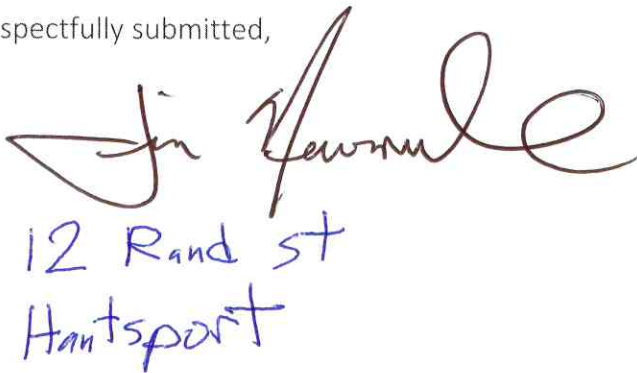 spectfully submitted,
Jim
12 Rand st
Hantsport